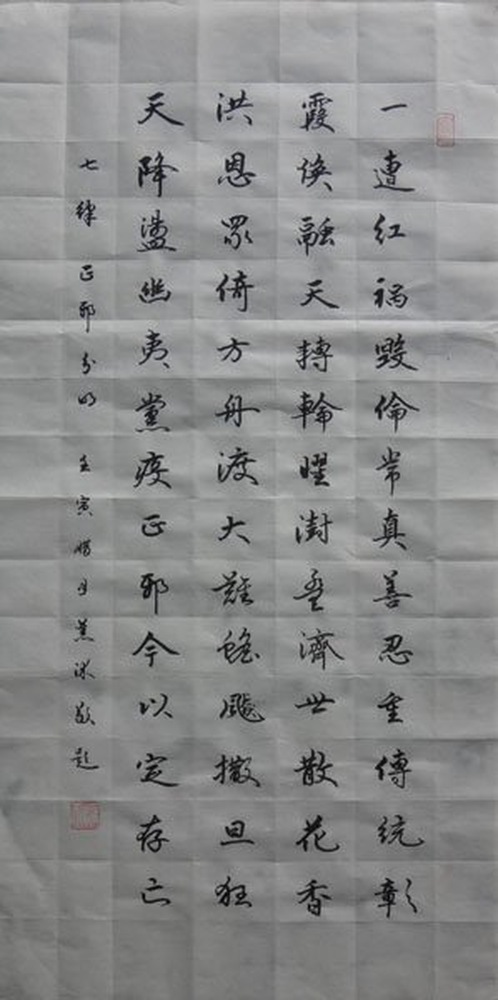 一遭红祸毁倫常真善忍重傳统彰
霞焕融天轉輪曜澍濟世散花香
洪恩眾倚方舟渡大難撒旦狂
天降盪幽夷黨疫正邪今以定存亡
七律 正邪分明 壬寅腊月敬题